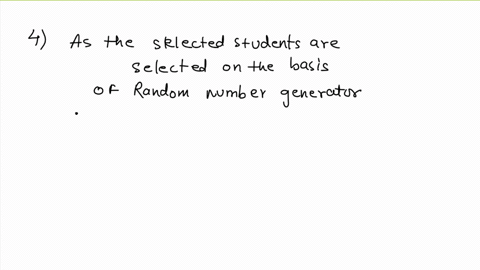 4) As the sklected students are
selected on the basis
of Random number generator